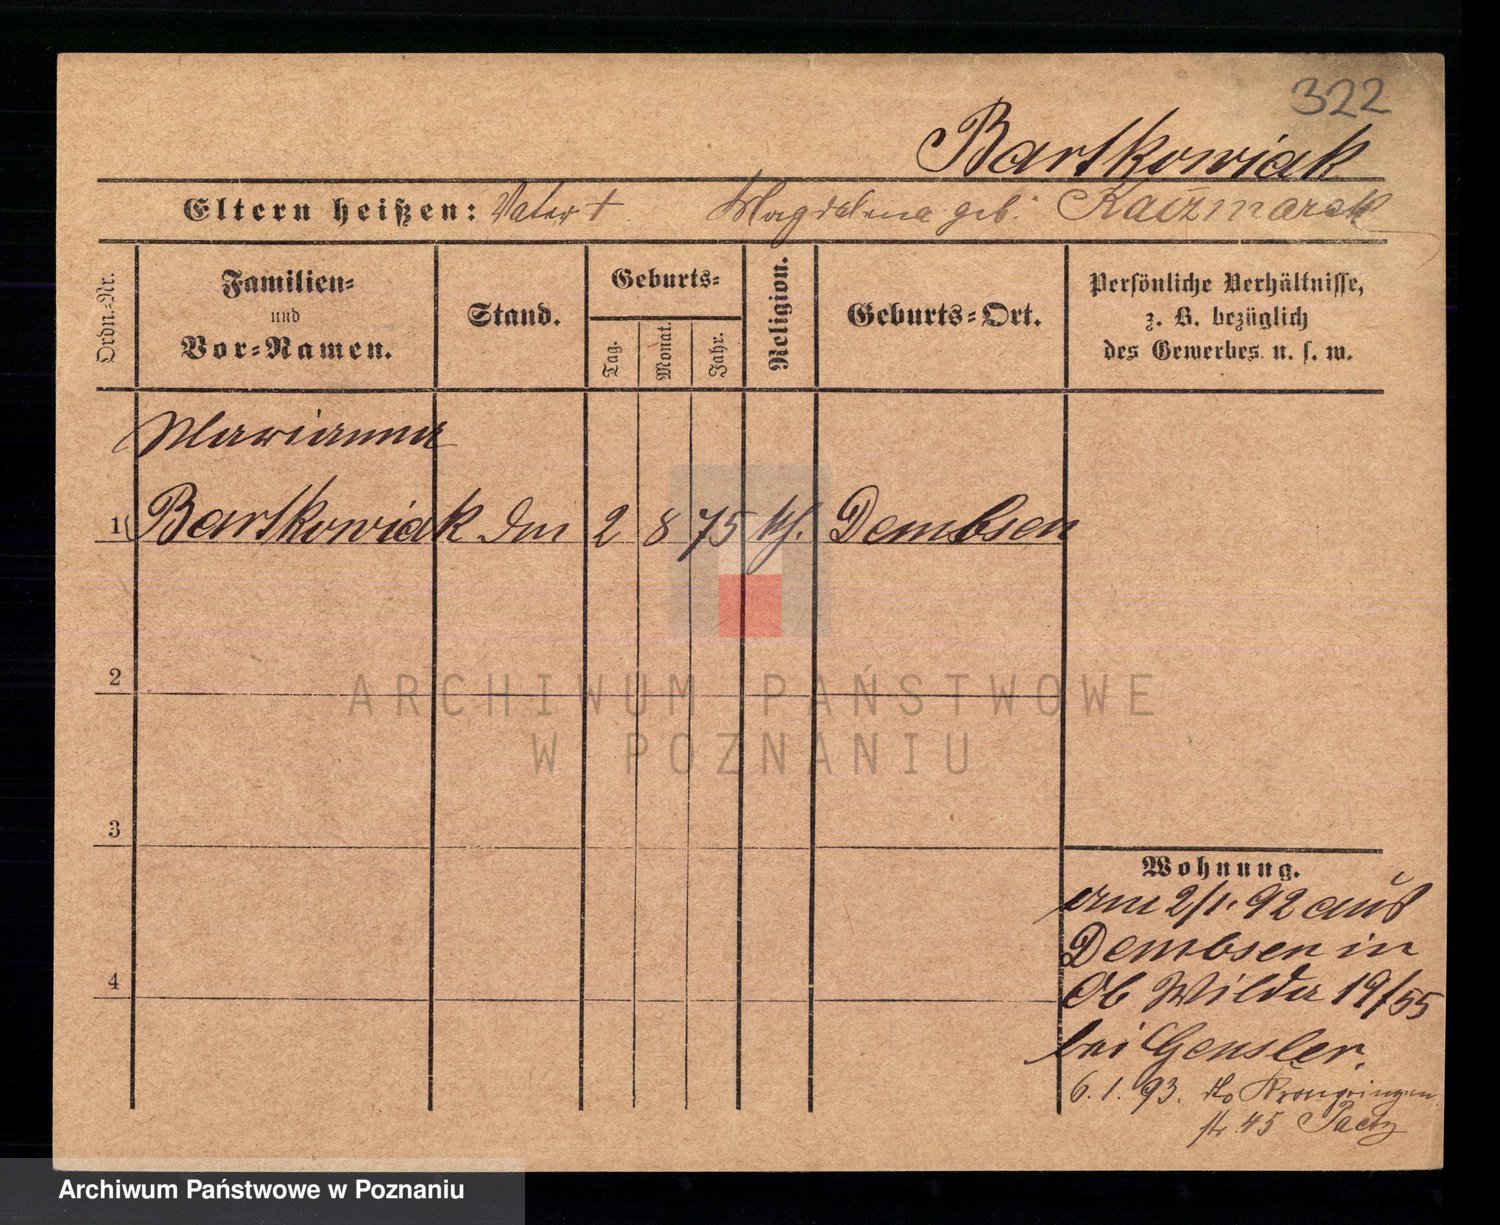 322
Bartkowiak
Eltern heißen: Vater † Magdalena geb. Kaczmarek
Ordn.-Nr.
Familien-
und
Vor-Namen.
Stand.
Geburts-
Tag.
Monat.
Jahr.
Religion.
Geburts-Ort.
Persönliche Verhältnisse,
z. B. bezüglich
des Gewerbes u. s. w.
Marianna
1 Bartkowiak 2 8 75 kf. Dembsen
2
ARCHIWUM PAŃSTWOWE
W POZNANIU
3
Wohnung.
am 2/1. 92 aus
Dembsen in
Ob Wilda 19/55
4
bei Gensler.
6. 1. 93. Kronprinzen
str. 45 Paetz
Archiwum Państwowe w Poznaniu